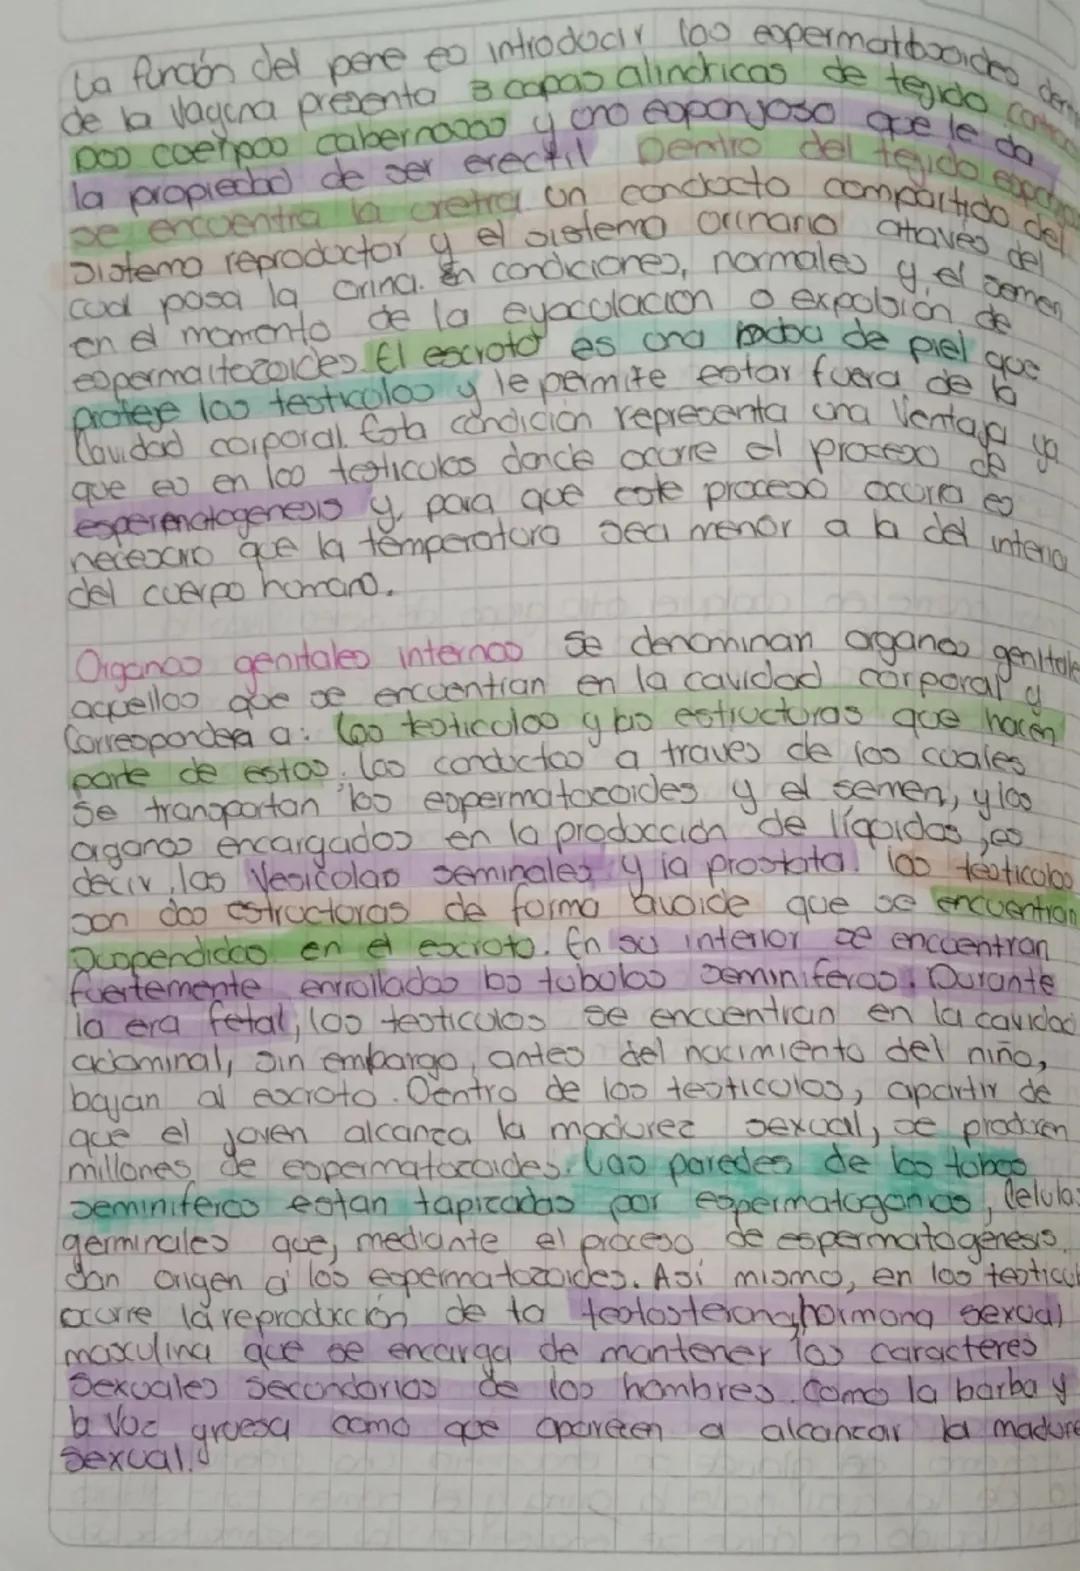 La función del pene es introducir los espermatozoides den
de la vagina presenta 3 capas alindricas de tejido
Dos cuerpos cabernosos y uno esponjoso que le da
la propiedad de ser erectil Dentro del tejido espon
se encuentra la uretra un conducto compartido del
sistema reproductor y el sistema orinario através del
cual pasa la orina. En condiciones, normales y, el semen
en el momento de la eyaculación o expolsión de
espermatozoides. El escroto es una bolsa de piel que
protege los testiculos y le permite estar fuera de la
Cavidad corporal. Esta condición representa una Ventaja ya
que es en los testiculos donde ocurre el proceso de
esperematogenesis y, para que este proceso ocurra es
necesario que la temperatura sea menor a la del interio
del cuerpo humano.
Organos genitales internos Se denominan organos genitale
aquellos que se encuentran en la cavidad corporal y
Corresponden a: los testiculos y las estructuras que hacen
parte de estos. los conductos a traves de los cuales
Se transportan los espermatozoides y el semen, y los
organos encargados en la producción de líquidos, es
decir, las Vesiculas seminales y la prostata. los testiculos
son dos estructuras de forma avoide que se encuentran
suspendidos en el escroto. En su interior se encuentran
fuertemente enrollados los tubulos seminiferos. Durante
la era fetal, los testiculos se encuentran en la cavidad
adominal, sin embargo, antes del nacimiento del niño,
bajan al escroto. Dentro de los testiculos, apartir de
que el joven alcanza la madurez sexual, se producen
millones de espermatozoides. Las paredes de los tubos
seminiferos estan tapizadas por espermatogonias, Celulas
germinales que, mediante el proceso de espermatogénesis,
dan origen a los espermatozoides. Asi mismo, en los testicul
ocurre la reproducción de ta testosterona, hormona sexual
masculina que se encarga de mantener los caracteres
Sexuales Secundarios de los hombres. Como la barba y
la Voz gruesa como que aparecen a alcanzar la madure
sexual.